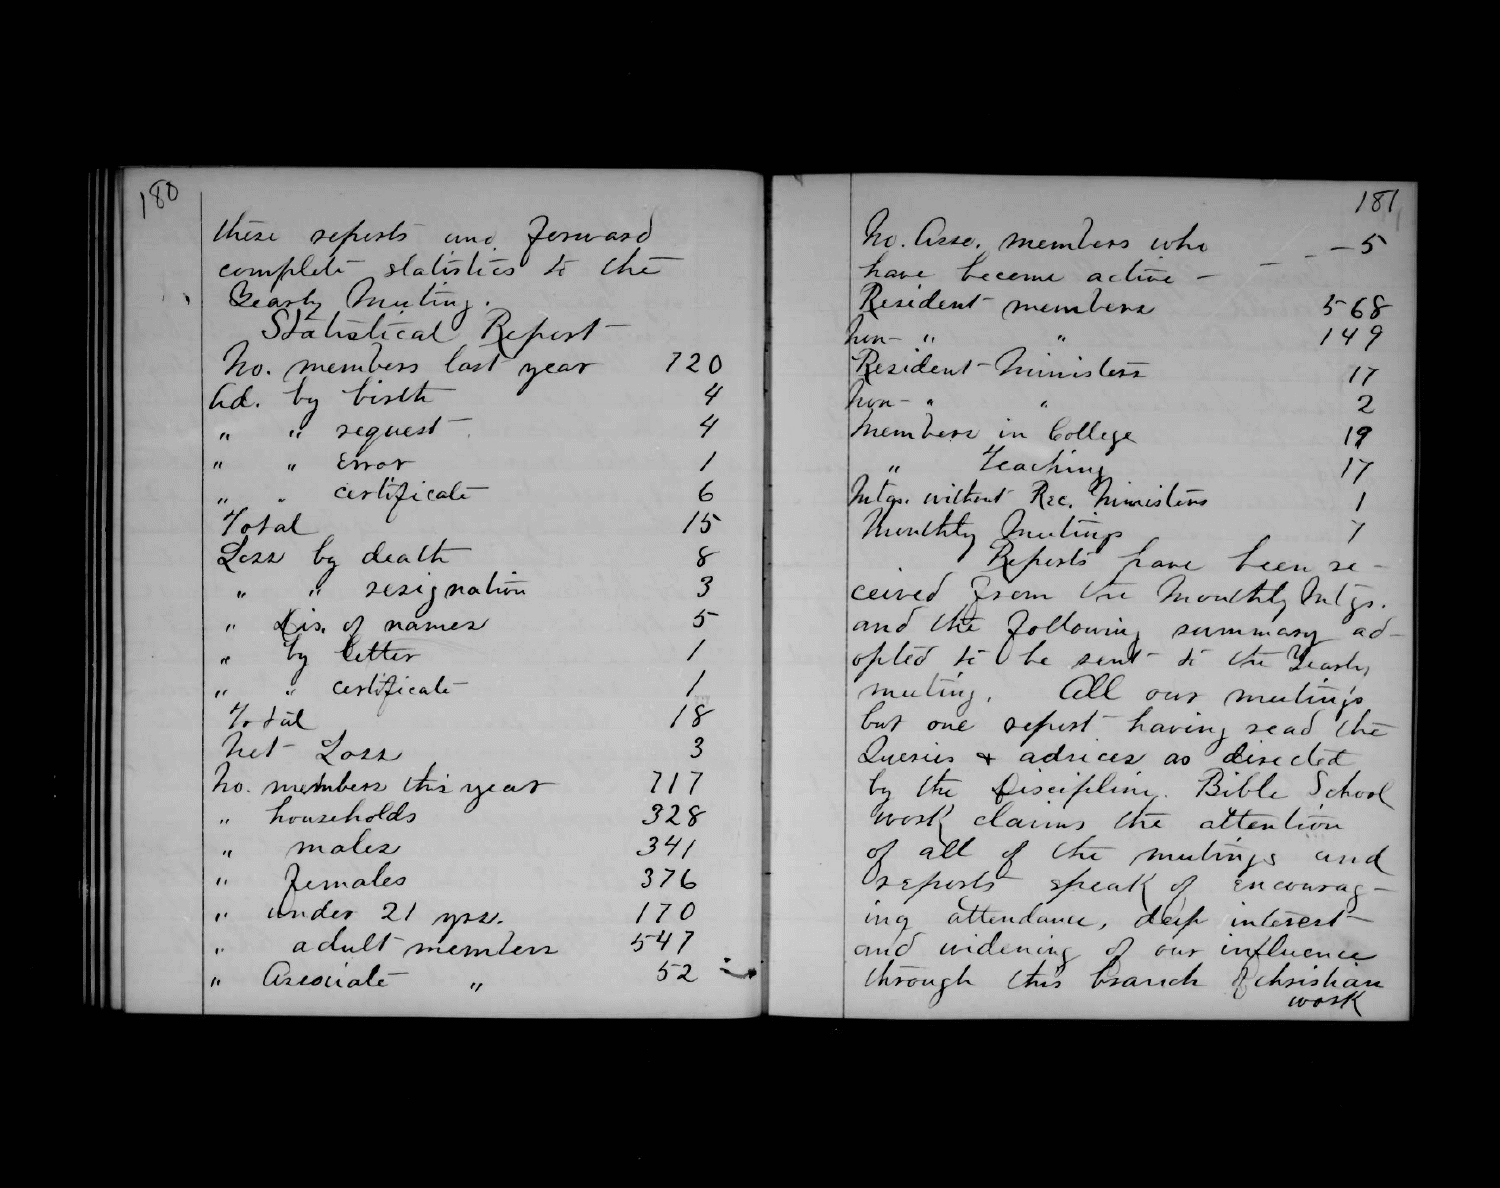 180
these reports and forward
complete statistics to the
Yearly Meeting.
Statistical Report
No. members last year 720
Ad. by birth 4
" " request 4
" " Error 1
" " certificate 6
Total 15
Loss by death 8
" " resignation 3
" Dis. of names 5
" by letter 1
" " certificate 1
Total 18
Net Loss 3
No. members this year 717
" households 328
" males 341
" females 376
" under 21 yrs. 170
" adult members 547
" Associate " 52
181
No. Asso. members who
have become active - - - - 5
Resident members 568
Non- " " 149
Resident Ministers 17
Non- " " 2
Members in College 19
" Teaching 17
Mtgs. without Rec. Ministers 1
Monthly Meetings 7
Reports have been re-
ceived from the Monthly Mtgs.
and the following summary ad-
opted to be sent to the Yearly
meeting. All our meetings
but one report having read the
Queries & advices as directed
by the Discipline. Bible School
work claims the attention
of all of the meetings and
reports speak of encourag-
ing attendance, deep interest
and widening of our influence
through this branch of Christian
work